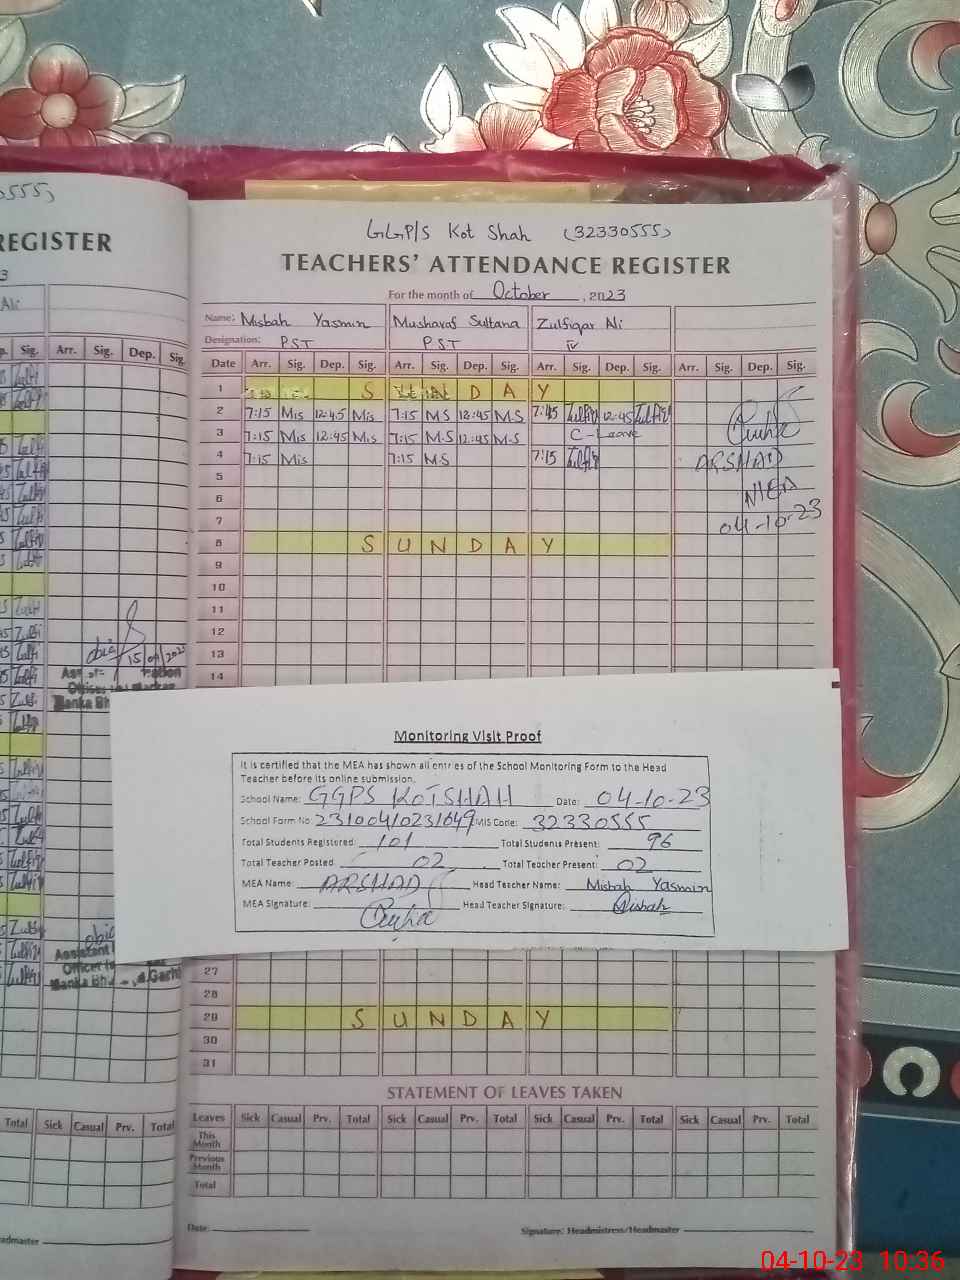 REGISTER
Sig. Arr. Sig. Dep. Sig.
GGP/S Kot Shah (32330555)
TEACHERS' ATTENDANCE REGISTER
For the month of October, 2023
Name: Misbah Yasmin Musharaf Sultana Zulfiqar Ali
Designation: PST PST IV
Date Arr. Sig. Dep. Sig. Arr. Sig. Dep. Sig. Arr. Sig. Dep. Sig. Arr. Sig. Dep. Sig.
1 S U N D A Y
2 7:15 Mis 12:45 Mis 7:15 MS 12:45 M.S 7:45 12:45
3 7:15 Mis 12:45 Mis 7:15 M.S 12:45 M.S C-Leave
4 7:15 Mis 7:15 MS 7:15 ARSHAD
5
6 MEA
7 04-10-23
8 S U N D A Y
9
10
11
12
13
14
15 09 2023
Monitoring Visit Proof
It is certified that the MEA has shown all entries of the School Monitoring Form to the Head
Teacher before its online submission.
School Name: GGPS KOTSHAH Date: 04-10-23
School Form No: 23100410231049 MIS Code: 32330555
Total Students Registered: 101 Total Students Present: 96
Total Teacher Posted 02 Total Teacher Present: 02
MEA Name: ARSHAD Head Teacher Name: Misbah Yasmin
MEA Signature: Head Teacher Signature: Misbah
27
28
29 S U N D A Y
30
31
STATEMENT OF LEAVES TAKEN
Leaves Sick Casual Prv. Total Sick Casual Prv. Total Sick Casual Prv. Total Sick Casual Prv. Total
This Month
Previous Month
Total
Total Sick Casual Prv. Total
Date: Signature: Headmistress/Headmaster
04-10-23 10:36